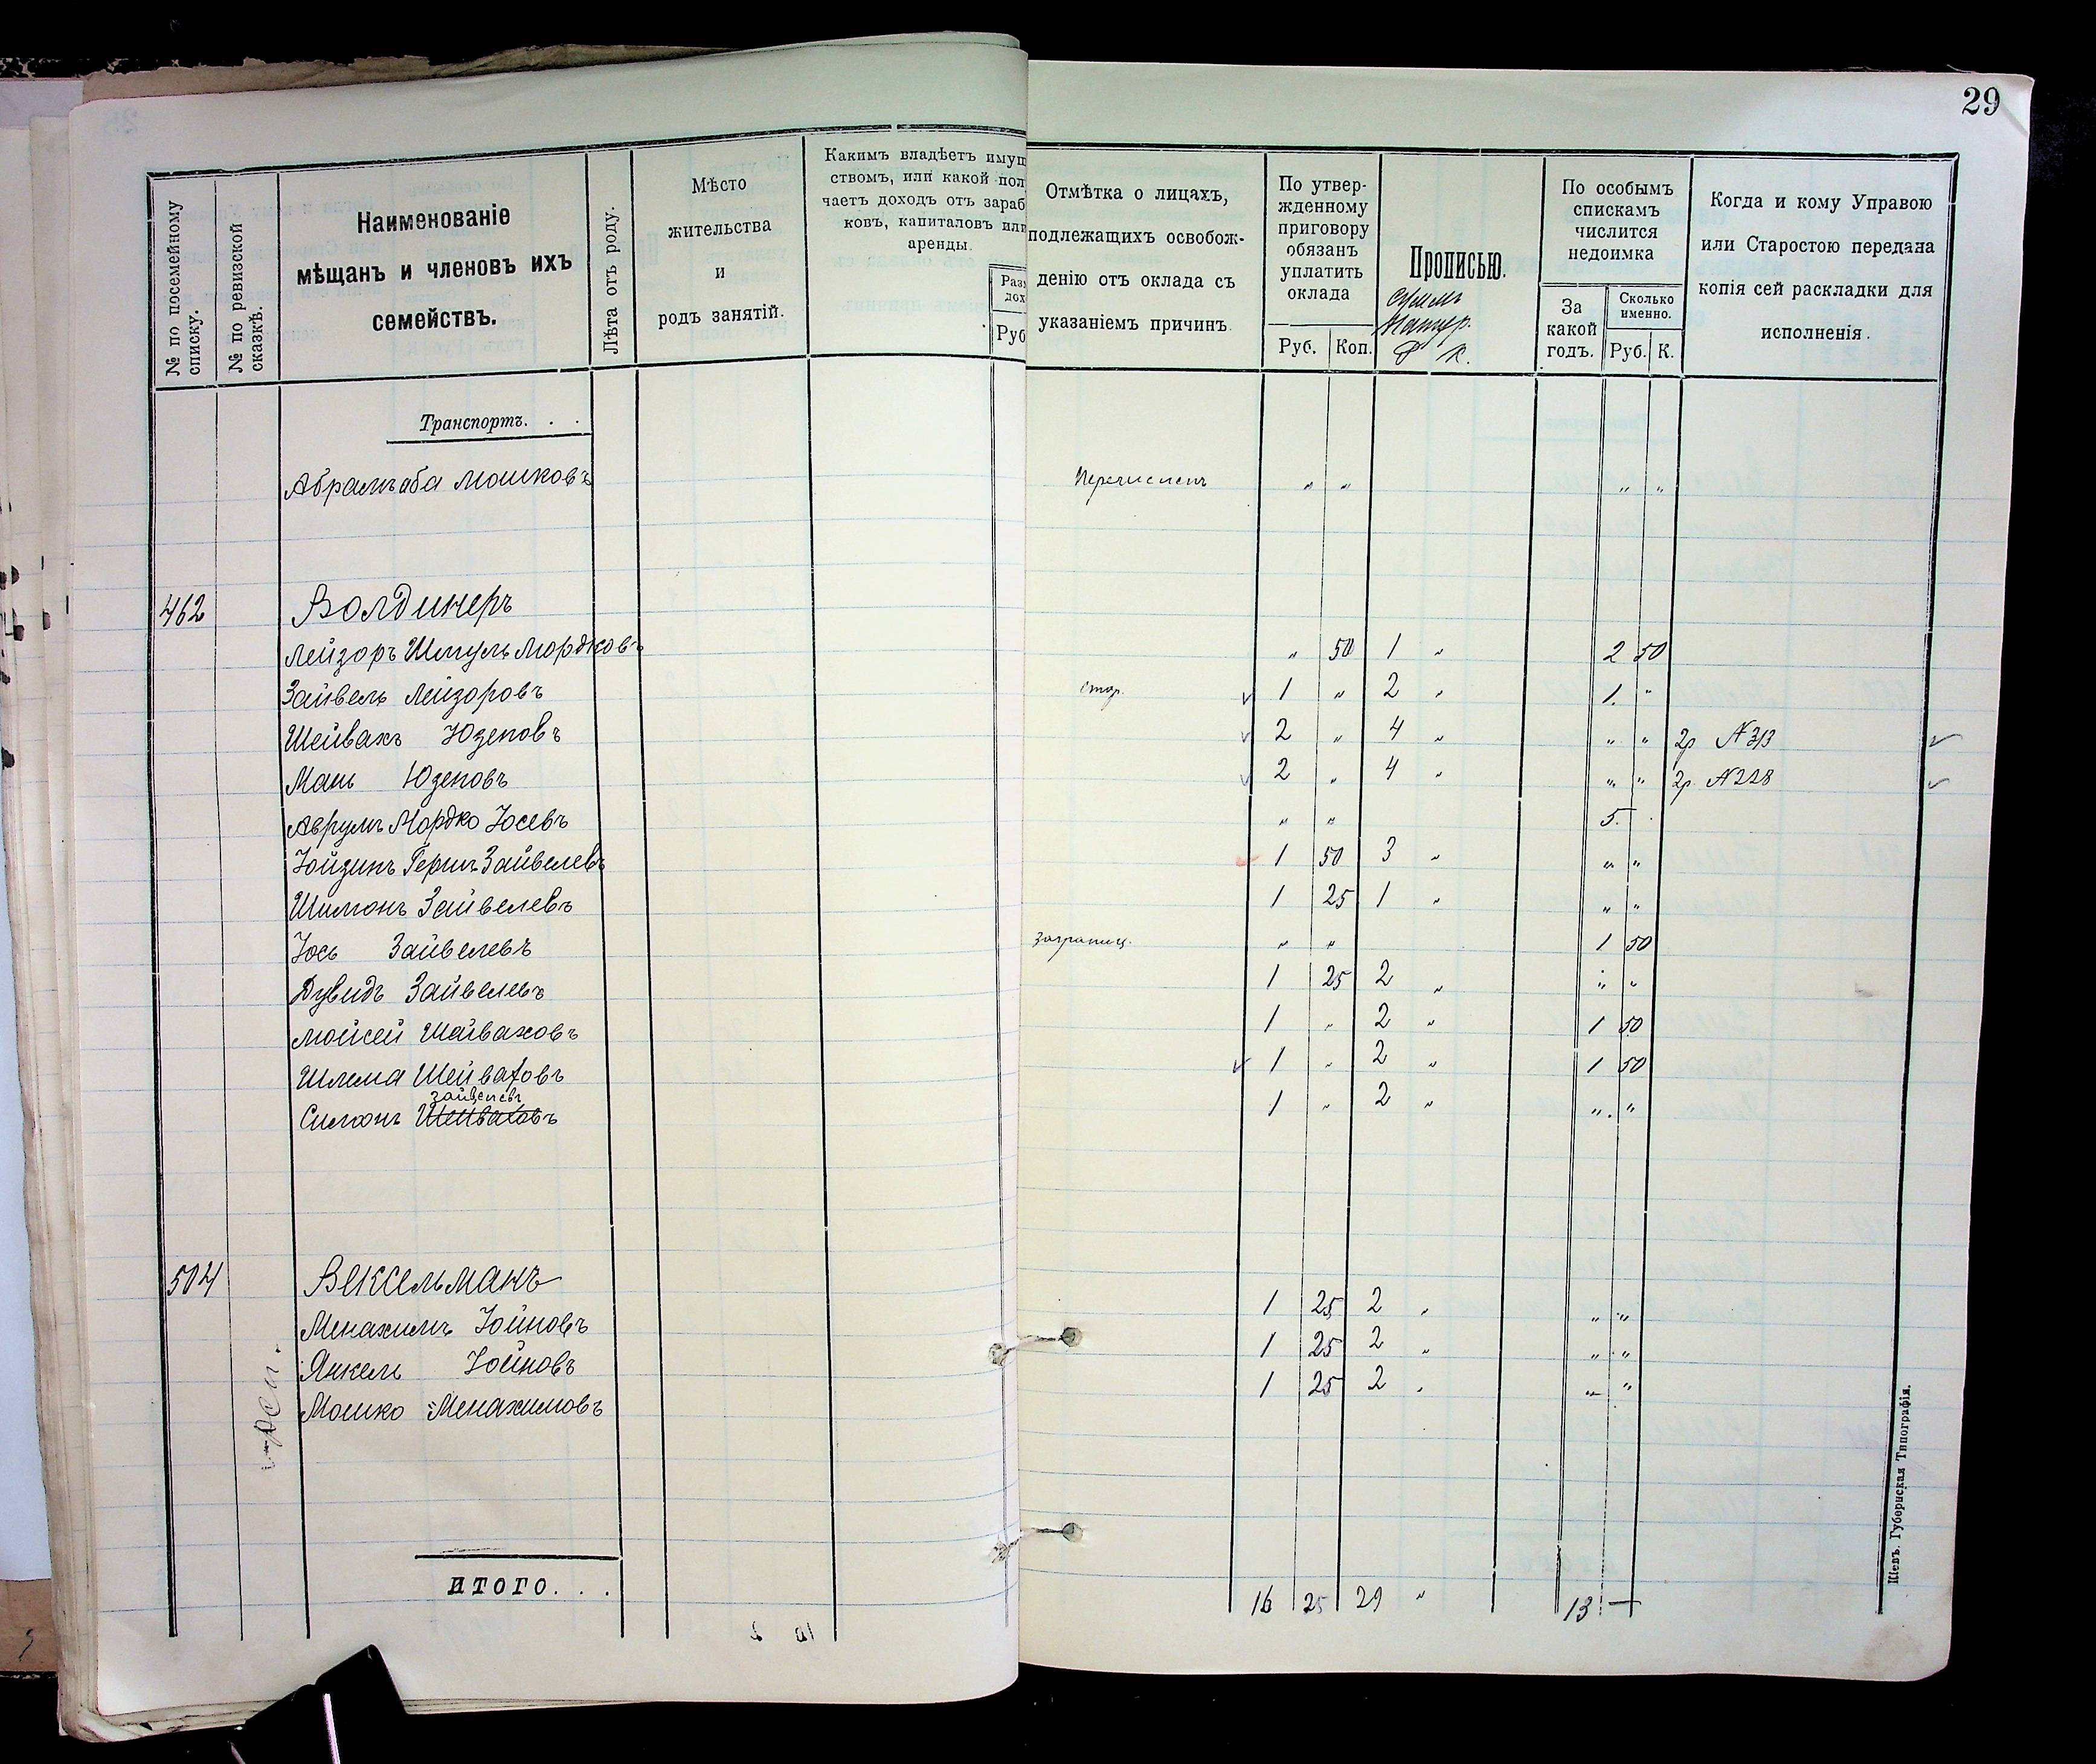 29
№ по посемейному списку.
№ по ревизской сказкѣ.
Наименованіе
мѣщанъ и членовъ ихъ
семействъ.
Лѣта отъ роду.
Мѣсто
жительства
и
родъ занятій.
Какимъ владѣетъ имущ
ствомъ, или какой пол
чаетъ доходъ отъ зараб
ковъ, капиталовъ или
аренды.
Раз
дох
Руб
Отмѣтка о лицахъ,
подлежащихъ освобож-
денію отъ оклада съ
указаніемъ причинъ.
По утвер-
жденному
приговору
обязанъ
уплатить
оклада
Руб. Коп.
Прописью.
Р К.
По особымъ
спискамъ
числится
недоимка
За
какой
годъ.
Сколько
именно.
Руб. К.
Когда и кому Управою
или Старостою передана
копія сей раскладки для
исполненія.
Транспортъ. . .
Абрамъ аба Мошковъ Перечисленъ „ „ „ „
462 Волдинеръ
Лейзоръ Шмуль Мордковъ „ 50 1 „ 2 50
Зайвель Лейзоровъ стар. 1 „ 2 „ 1. „
Шейвахъ Юзеповъ 2 „ 4 „ „ „ 2р №313
Мань Юзеповъ 2 „ 4 „ „ „ 2р. №228
Аврумъ Мордко Іосевъ „ „ 5.
Іойзипъ Гершъ Зайвелевъ 1 50 3 „ „ „
Шимонъ Зайвелевъ 1 25 1 „ „ „
Іось Зайвелевъ заграниц. „ „ 1 50
Дувидъ Зайвелевъ 1 25 2 „ „ „
Мойсей Шайваховъ 1 „ 2 „ 1 50
Шлема Шейваховъ 1 „ 2 „ 1 50
Зайвелевъ
Симонъ Шейваховъ 1 „ 2 „ „ „
504 Вексельманъ
Менахимъ Іойновъ 1 25 2 „ „ „
Янкель Іойновъ 1 25 2 „ „ „
Мошко Менахимовъ 1 25 2 „ „ „
ИТОГО. . . 16 25 29 „ 13 —
Кіевъ. Губернская Типографія.